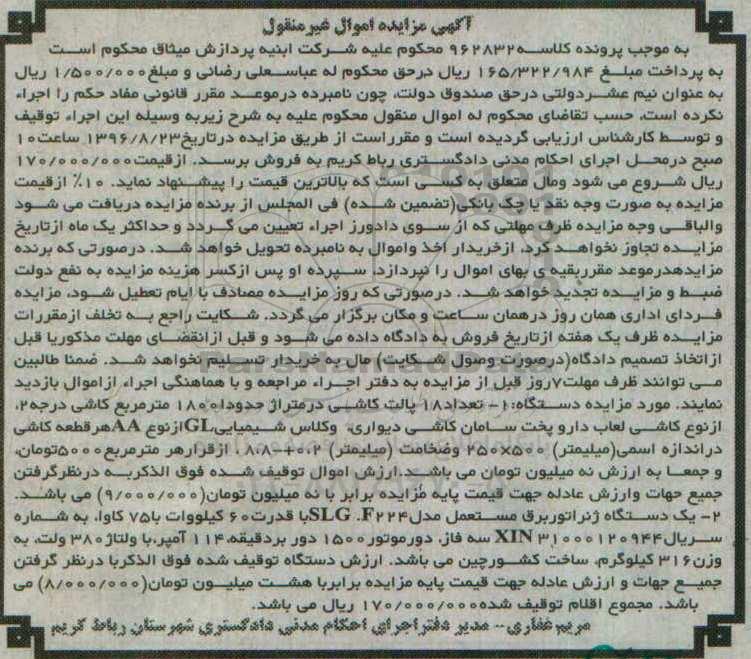 آگهی مزایده اموال غیر منقول
به موجب پرونده کلاسه ۹۶۲۸۳۲ محکوم علیه شرکت ابنیه پردازش میثاق محکوم است
به پرداخت مبلغ ۱۶۵/۳۲۲/۹۸۴ ریال درحق محکوم له عباسعلی رضائی و مبلغ ۱/۵۰۰/۰۰۰ ریال
به عنوان نیم عشردولتی درحق صندوق دولت، چون نامبرده درموعد مقرر قانونی مفاد حکم را اجراء
نکرده است، حسب تقاضای محکوم له اموال منقول محکوم علیه به شرح زیربه وسیله این اجراء توقیف
و توسط کارشناس ارزیابی گردیده است و مقرراست از طریق مزایده درتاریخ ۱۳۹۶/۸/۲۳ ساعت ۱۰
صبح درمحل اجرای احکام مدنی دادگستری رباط کریم به فروش برسد. ازقیمت ۱۷۰/۰۰۰/۰۰۰
ریال شروع می شود ومال متعلق به کسی است که بالاترین قیمت را پیشنهاد نماید. ۱۰٪ ازقیمت
مزایده به صورت وجه نقد یا چک بانکی(تضمین شده) فی المجلس از برنده مزایده دریافت می شود
والباقی وجه مزایده ظرف مهلتی که از سوی دادورز اجراء تعیین می گردد و حداکثر یک ماه ازتاریخ
مزایده تجاوز نخواهد کرد، ازخریدار اخذ واموال به نامبرده تحویل خواهد شد. درصورتی که برنده
مزایدهدرموعد مقرربقیه ی بهای اموال را نپردازد، سپرده او پس ازکسر هزینه مزایده به نفع دولت
ضبط و مزایده تجدید خواهد شد. درصورتی که روز مزایده مصادف با ایام تعطیل شود، مزایده
فردای اداری همان روز درهمان ساعت و مکان برگزار می گردد. شکایت راجع به تخلف ازمقررات
مزایده ظرف یک هفته ازتاریخ فروش به دادگاه داده می شود و قبل ازانقضای مهلت مذکوریا قبل
ازاتخاذ تصمیم دادگاه(درصورت وصول شکایت) مال به خریدار تسلیم نخواهد شد. ضمنا طالبین
می توانند ظرف مهلت ۷روز قبل از مزایده به دفتر اجراء مراجعه و با هماهنگی اجراء ازاموال بازدید
نمایند. مورد مزایده دستگاه: ۱- تعداد ۱۸ پالت کاشی درمتراژ حدودا ۱۸۰۰ مترمربع کاشی درجه ۲،
ازنوع کاشی لعاب دارو پخت سامان کاشی دیواری، وکلاس شیمیایی GL ازنوع AA هرقطعه کاشی
دراندازه اسمی(میلیمتر) ۵۰۰×۲۵۰ وضخامت (میلیمتر) ۰.۲+-۸.۸، ازقرارهر مترمربع ۵۰۰۰تومان،
و جمعا به ارزش نه میلیون تومان می باشد. ارزش اموال توقیف شده فوق الذکربه درنظرگرفتن
جمیع جهات وارزش عادله جهت قیمت پایه مزایده برابر با نه میلیون تومان(۹/۰۰۰/۰۰۰) می باشد.
۲- یک دستگاه ژنراتوربرق مستعمل مدل SLG .F۲۲۴ با قدرت ۶۰ کیلووات با ۷۵ کاوا، به شماره
سریال XIN ۳۱۰۰۰۱۲۰۹۴۴ سه فاز، دورموتور ۱۵۰۰ دور بردقیقه، ۱۱۴ آمپر، با ولتاژ ۳۸۰ ولت، به
وزن ۳۱۶ کیلوگرم، ساخت کشورچین می باشد. ارزش دستگاه توقیف شده فوق الذکربا درنظر گرفتن
جمیع جهات و ارزش عادله جهت قیمت پایه مزایده برابربا هشت میلیون تومان(۸/۰۰۰/۰۰۰) می
باشد. مجموع اقلام توقیف شده ۱۷۰/۰۰۰/۰۰۰ ریال می باشد.
مریم غفاری-- مدیر دفتر اجرای احکام مدنی دادگستری شهرستان رباط کریم
ParsNamadData